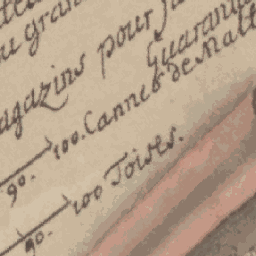 au gran
magazins pour fa
Quaranta
100. Cannes de Malt
90.
100 Toises.
90.